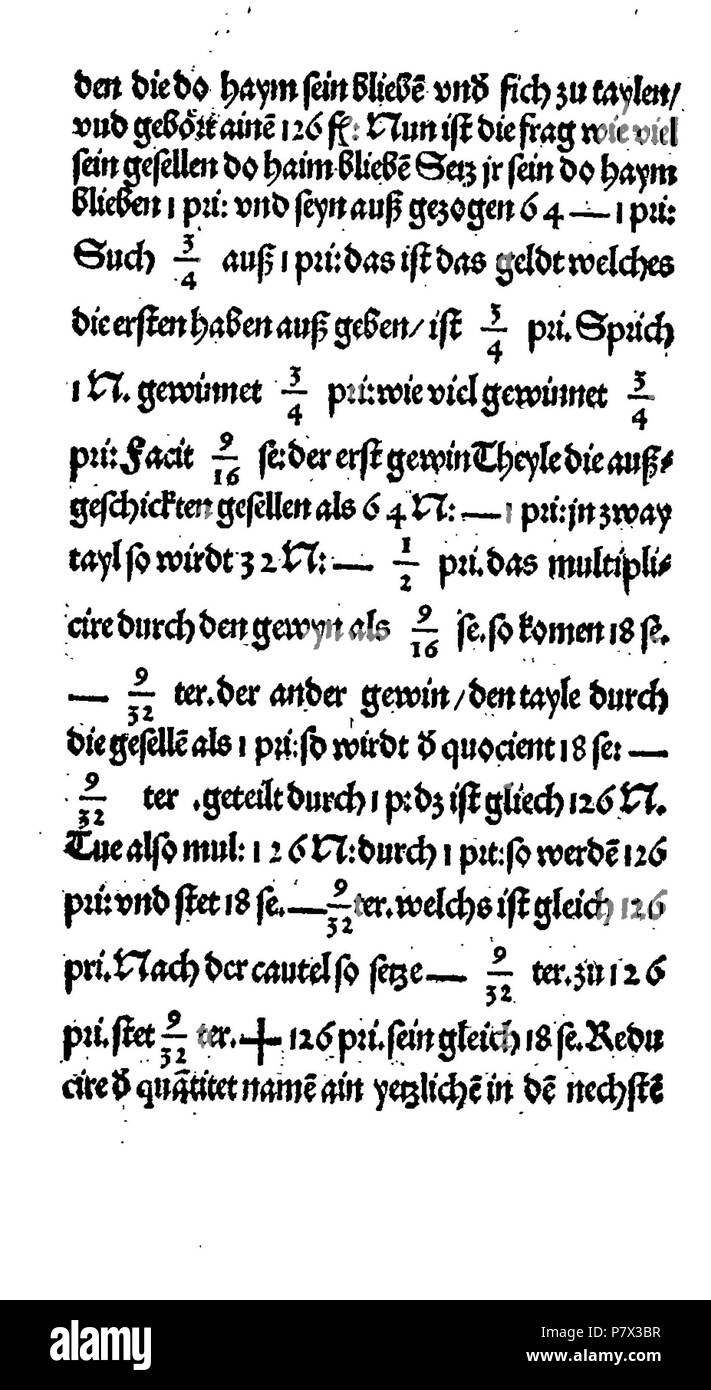 den die do haym sein bliebē vnd sich zu taylen/
vnd gebört ainē 126 fl: Nun ist die frag wie viel
sein gesellen do haim bliebē Setz jr sein do haym
blieben 1 pri: vnd seyn auß gezogen 64 — 1 pri:
Such 3/4 auß 1 pri: das ist das geldt welches
die ersten haben auß geben/ ist 3/4 pri. Sprich
1 N. gewinnet 3/4 pri: wie viel gewinnet 3/4
pri: Facit 9/16 se: der erst gewin Theyle die auß⸗
geschickten gesellen als 64 N: — 1 pri: jn zway
tayl so wirdt 32 N: — 1/2 pri. das multipli⸗
cire durch den gewyn als 9/16 se. so komen 18 se.
— 9/32 ter. der ander gewin/ den tayle durch
die gesellē als 1 pri: so wirdt đ quocient 18 se: —
9/32 ter . geteilt durch 1 p: dz ist gliech 126 N.
Tue also mul: 126 N: durch 1 pri: so werdē 126
pri: vnd stet 18 se. — 9/32 ter. welchs ist gleich 126
pri. Nach der cautel so setze — 9/32 ter. zu 126
pri. stet 9/32 ter. + 126 pri. sein gleich 18 se. Redu
cire đ quātitet namē ain yetzlichē in dē nechstē
alamy
Image ID: P7X3BR
www.alamy.com